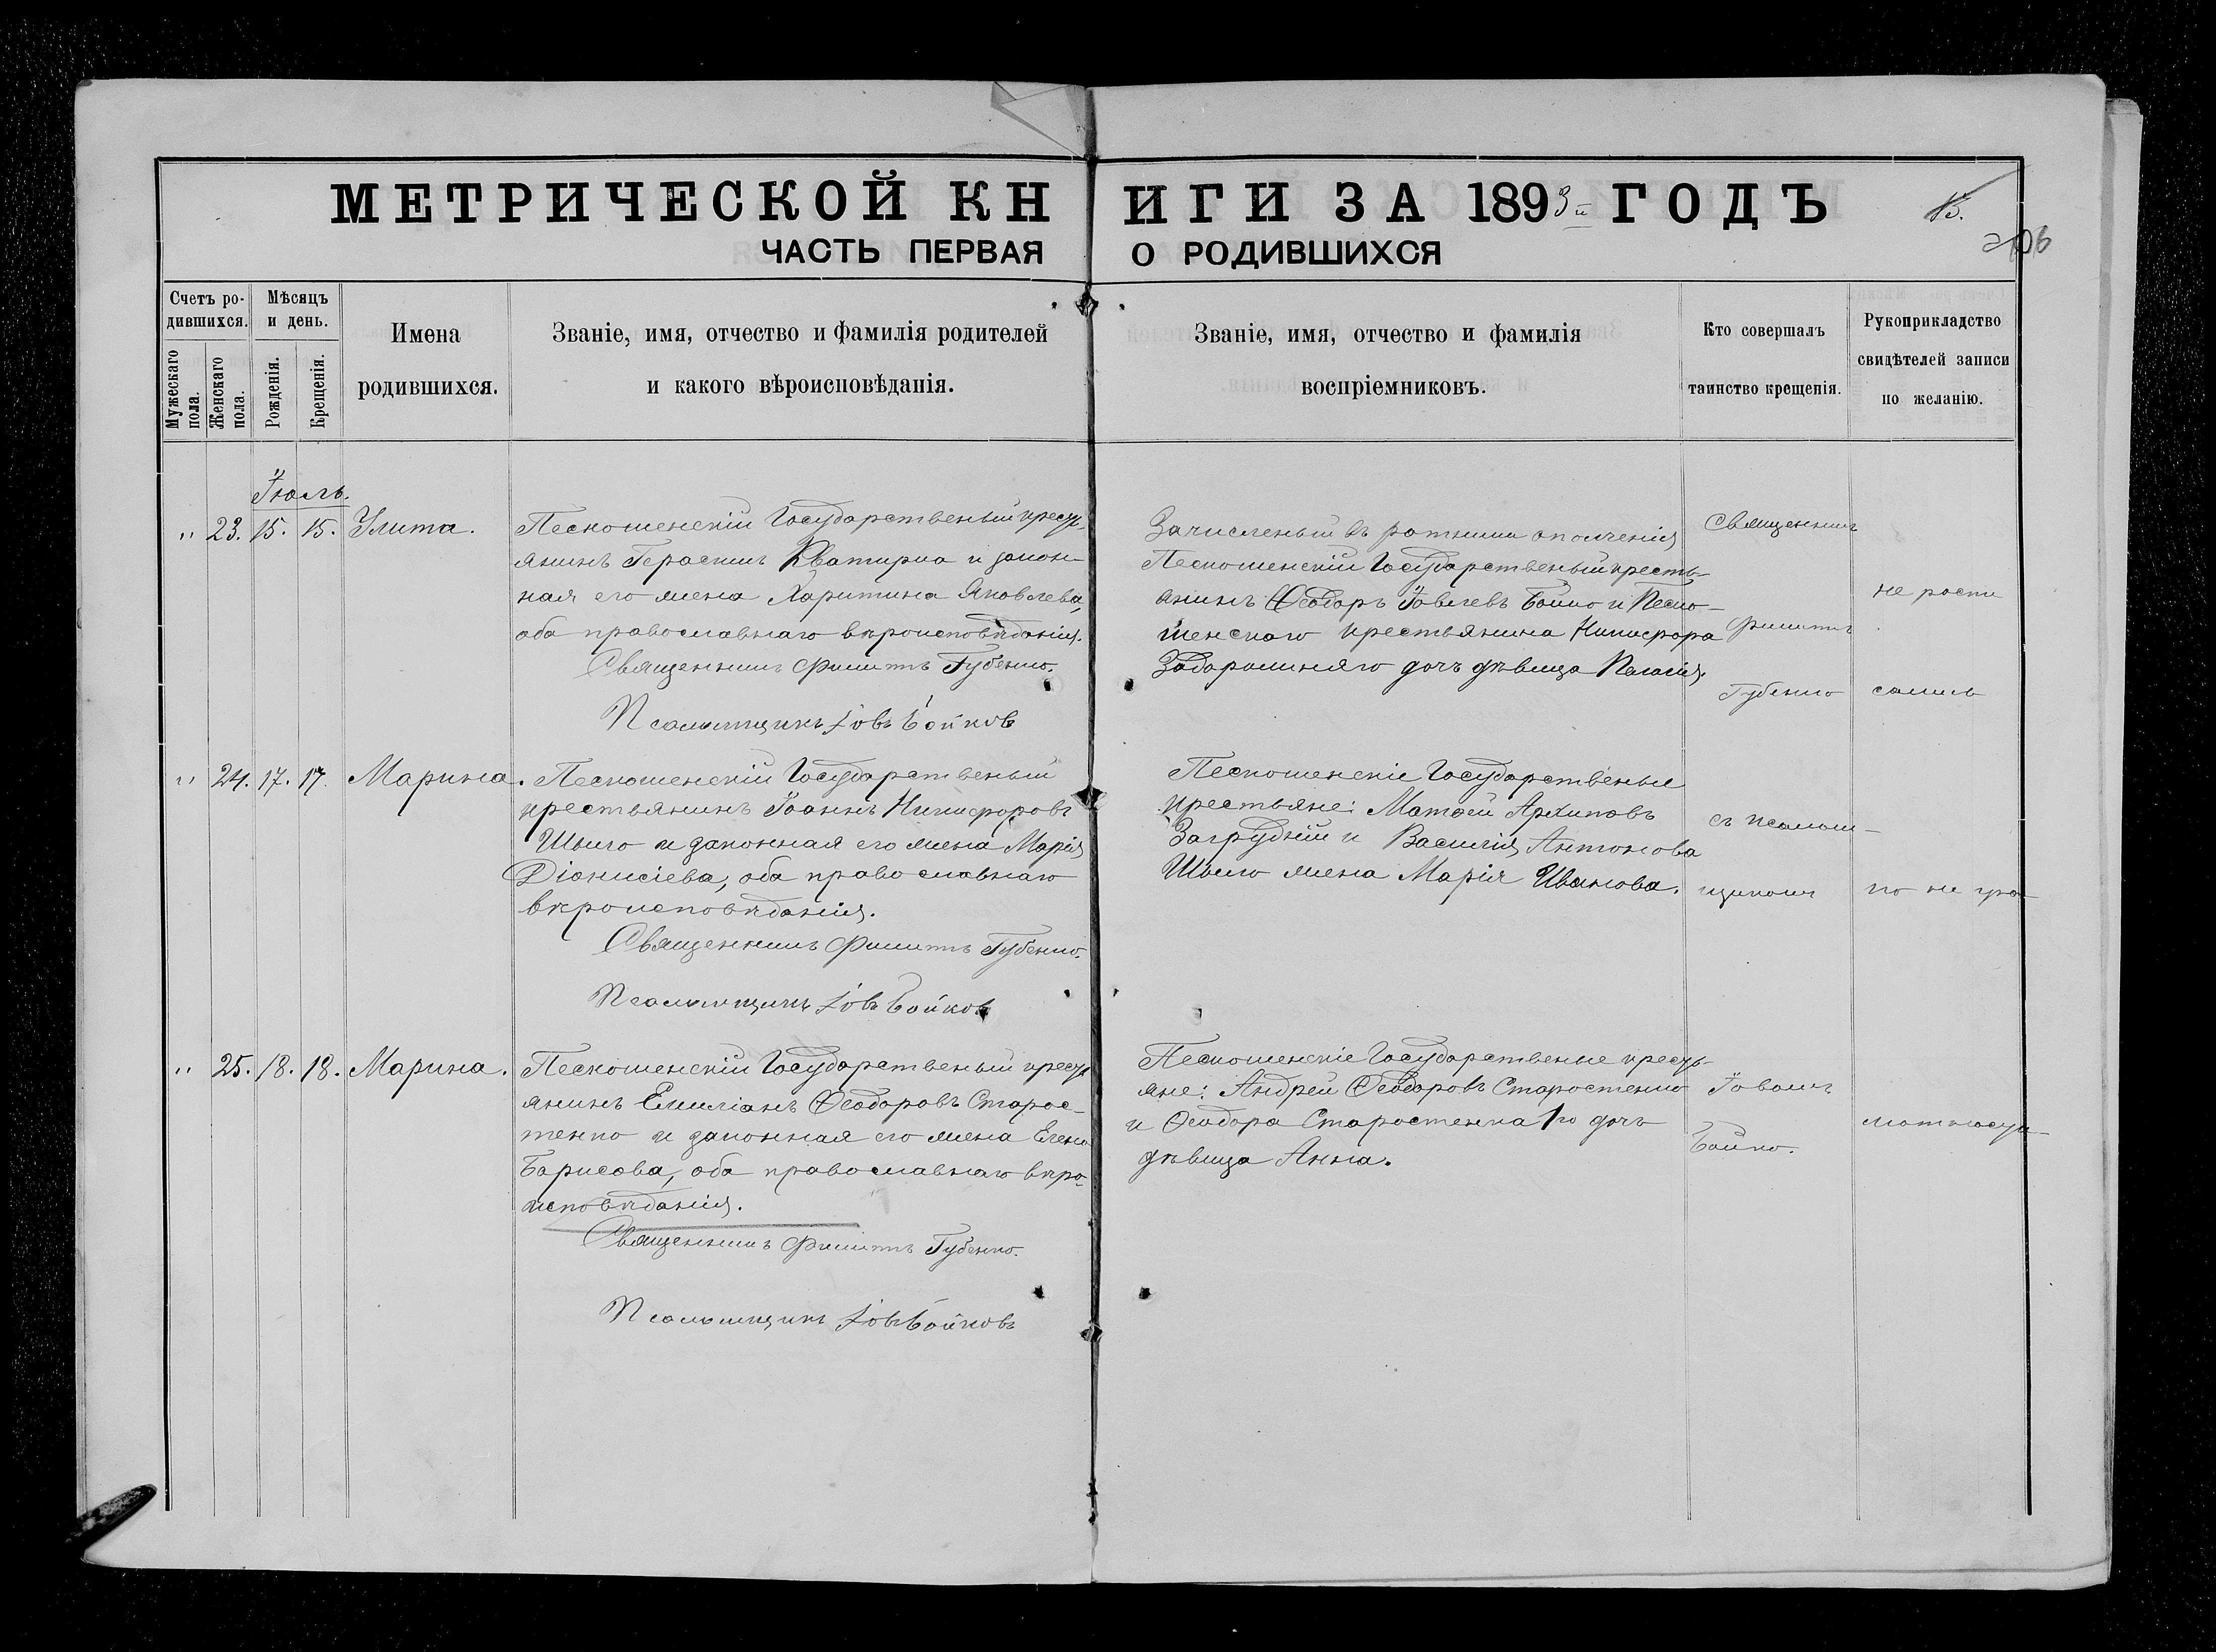 МЕТРИЧЕСКОЙ КНИГИ ЗА 1893й ГОДЪ
15.
206
ЧАСТЬ ПЕРВАЯ О РОДИВШИХСЯ
Счетъ ро-
дившихся.
Мужескаго
пола.
Женскаго
пола.
Мѣсяцъ
и день.
Рожденія.
Крещенія.
Имена
родившихся.
Званіе, имя, отчество и фамилія родителей
и какого вѣроисповѣданія.
Званіе, имя, отчество и фамилія
воспріемниковъ.
Кто совершалъ
таинство крещенія.
Рукоприкладство
свидѣтелей записи
по желанію.
Іюль.
" 23. 15. 15. Улита.
Пескошенскій Государственый крест-
янинъ Герасим Кватирка и закон-
ная его жена Харитина Яковлева,
оба православнаго вѣроисповѣданія.
Священникъ Филиппъ Губенко.
Псаломщикъ Іовъ Бойковъ
Зачисленый въ ратники ополченія
Пескошенскій Государственый кресть-
янинъ Ѳеодоръ Іовлевъ Бойко и Песко-
шенскаго крестьянина Никифора
Задорожняго дочъ дѣвица Пелагія.
Священникъ
Филиппъ
Губенко
не роспи
сались
" 24. 17. 17. Марина.
Пескошенскій Государственый
крестьянинъ Іоаннъ Никифоровъ
Швыго и законная его жена Марія
Діонисіева, оба православнаго
вѣроисповѣданія.
Священникъ Филиппъ Губенко.
Псаломщикъ Іовъ Бойковъ
Пескошенскіе Государственые
крестьяне: Матѳей Архиповъ
Загрудній и Василія Антонова
Швыго жена Марія Иванова.
съ псалом-
щикомъ
по не гра-
" 25. 18. 18. Марина.
Пескошенскій Государственый крест
янинъ Емиліанъ Ѳеодоровъ Старос-
тенко и законная его жена Елена
Борисова, оба православнаго вѣро-
исповѣданія.
Священникъ Филиппъ Губенко.
Псаломщикъ Іовъ Бойковъ
Пескошенскіе Государственые кресть-
яне: Андрей Ѳеодоровъ Старостенко
и Ѳеодора Старостенка 1го дочъ
дѣвица Анна.
Іовомъ
Бойко.
мотности-